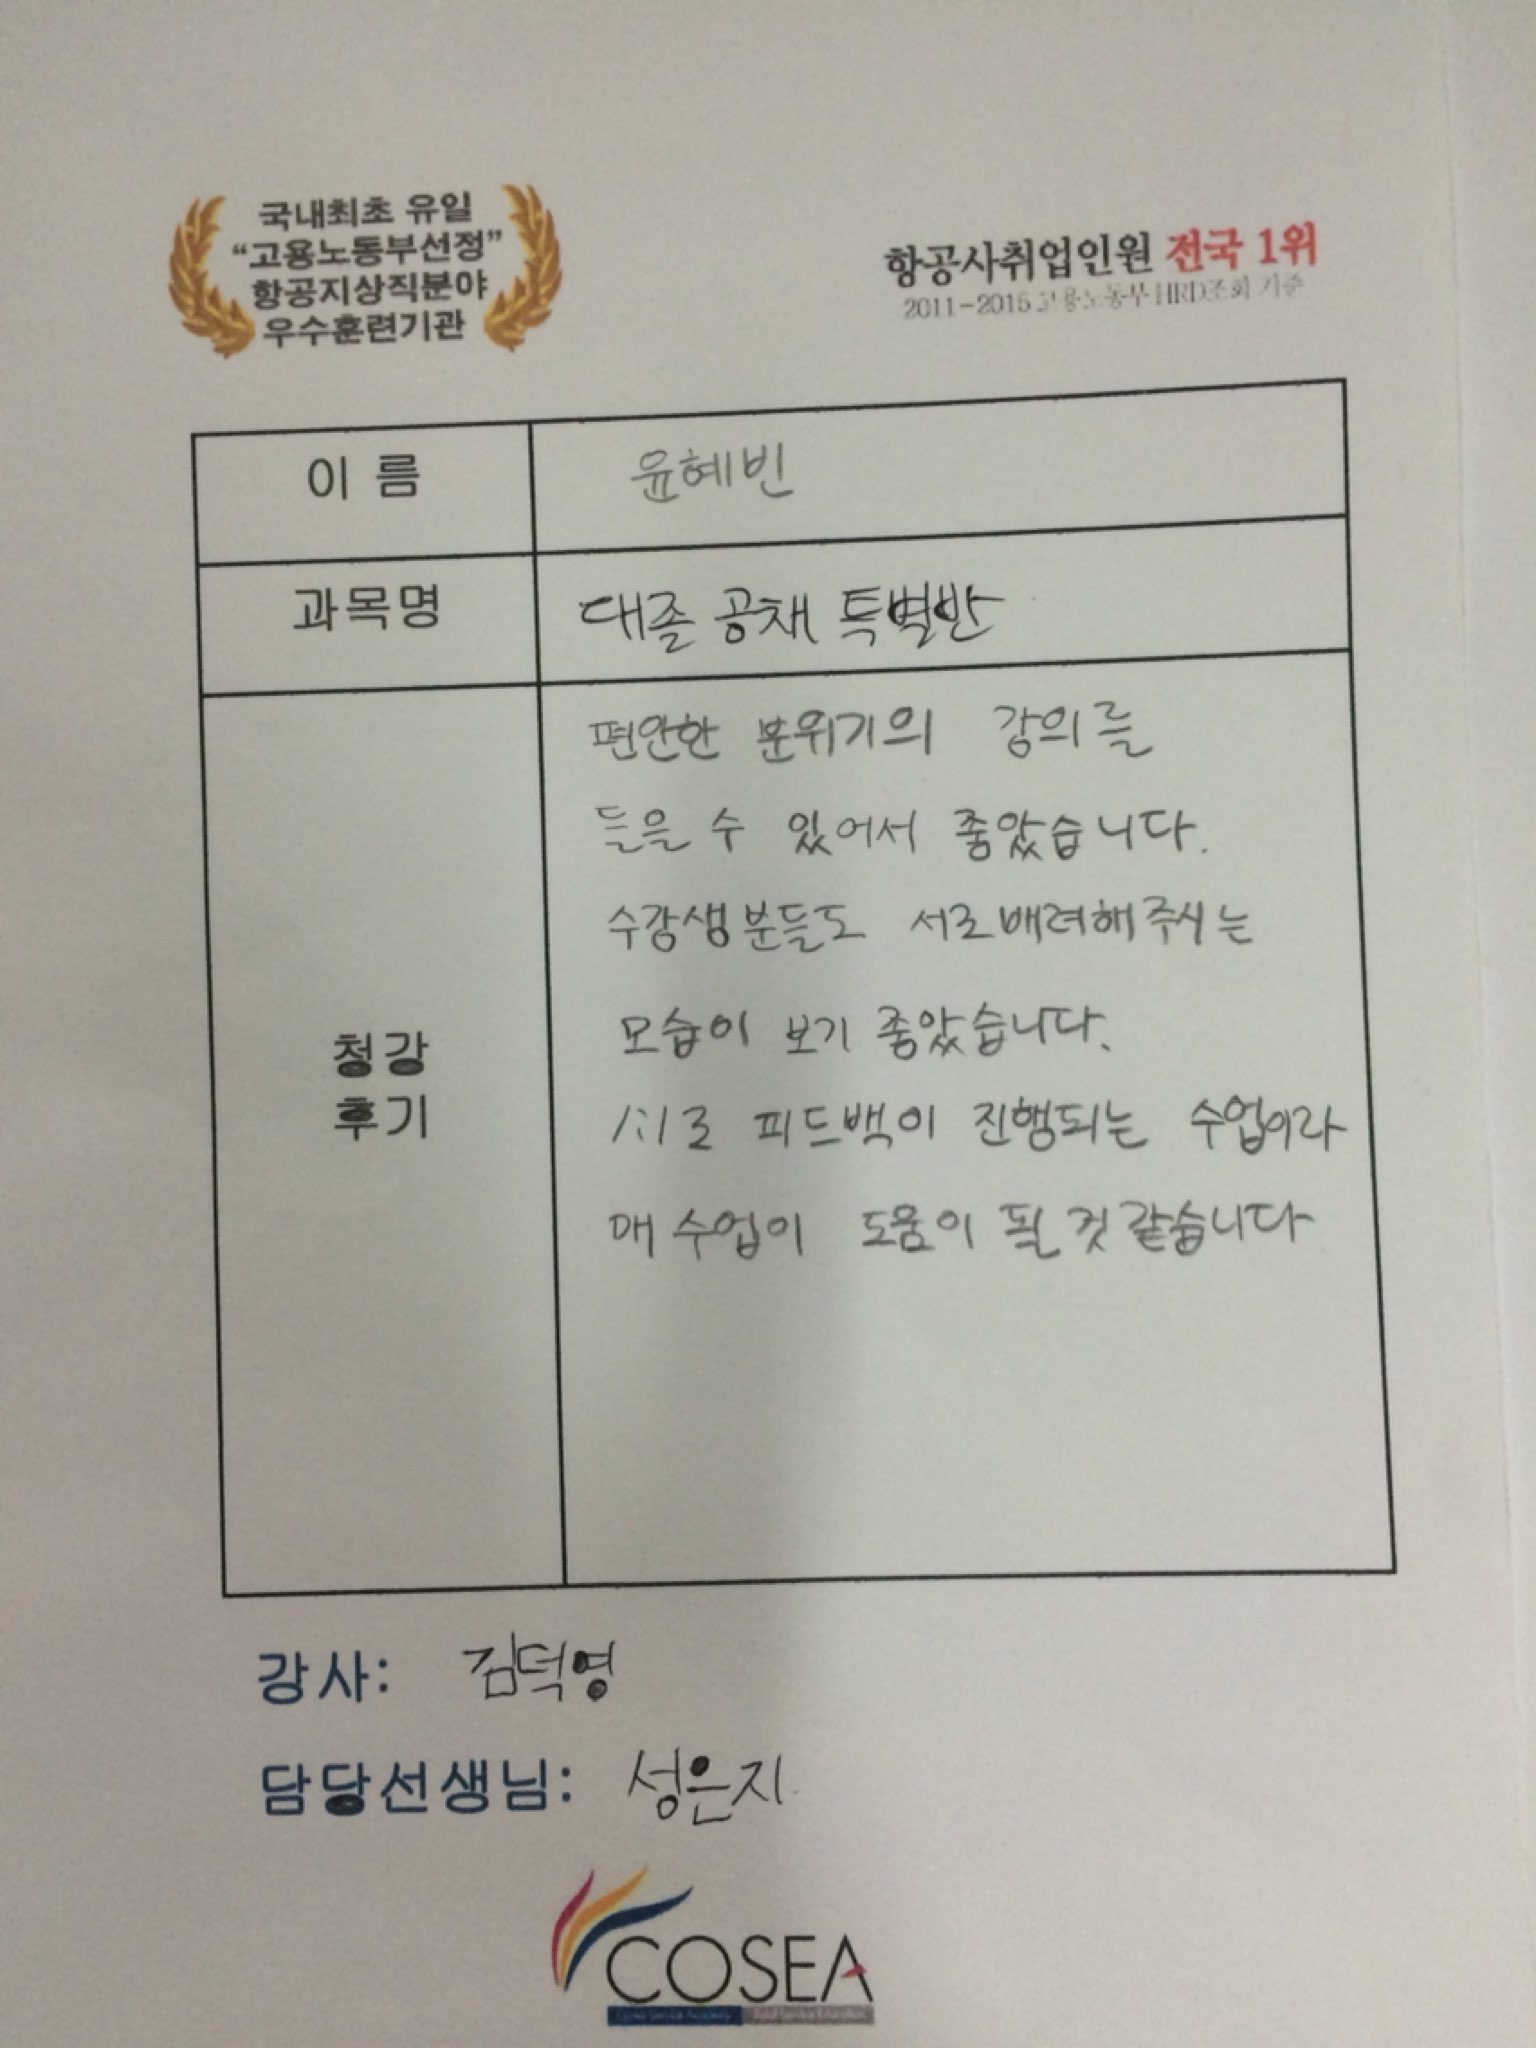 국내최초 유일
“고용노동부선정”
항공지상직분야
우수훈련기관
항공사취업인원 전국 1위
2011-2015 고용노동부 HRD조회 기준
이 름
윤혜빈
과목명
대졸 공채 특별반
청강
후기
편안한 분위기의 강의를
들을 수 있어서 좋았습니다.
수강생분들도 서로배려해주시는
모습이 보기 좋았습니다.
1:1로 피드백이 진행되는 수업이라
매 수업이 도움이 될 것 같습니다
강사: 김덕영
담당선생님: 성은지
COSEA
Cosea Service Academy Total Service Education